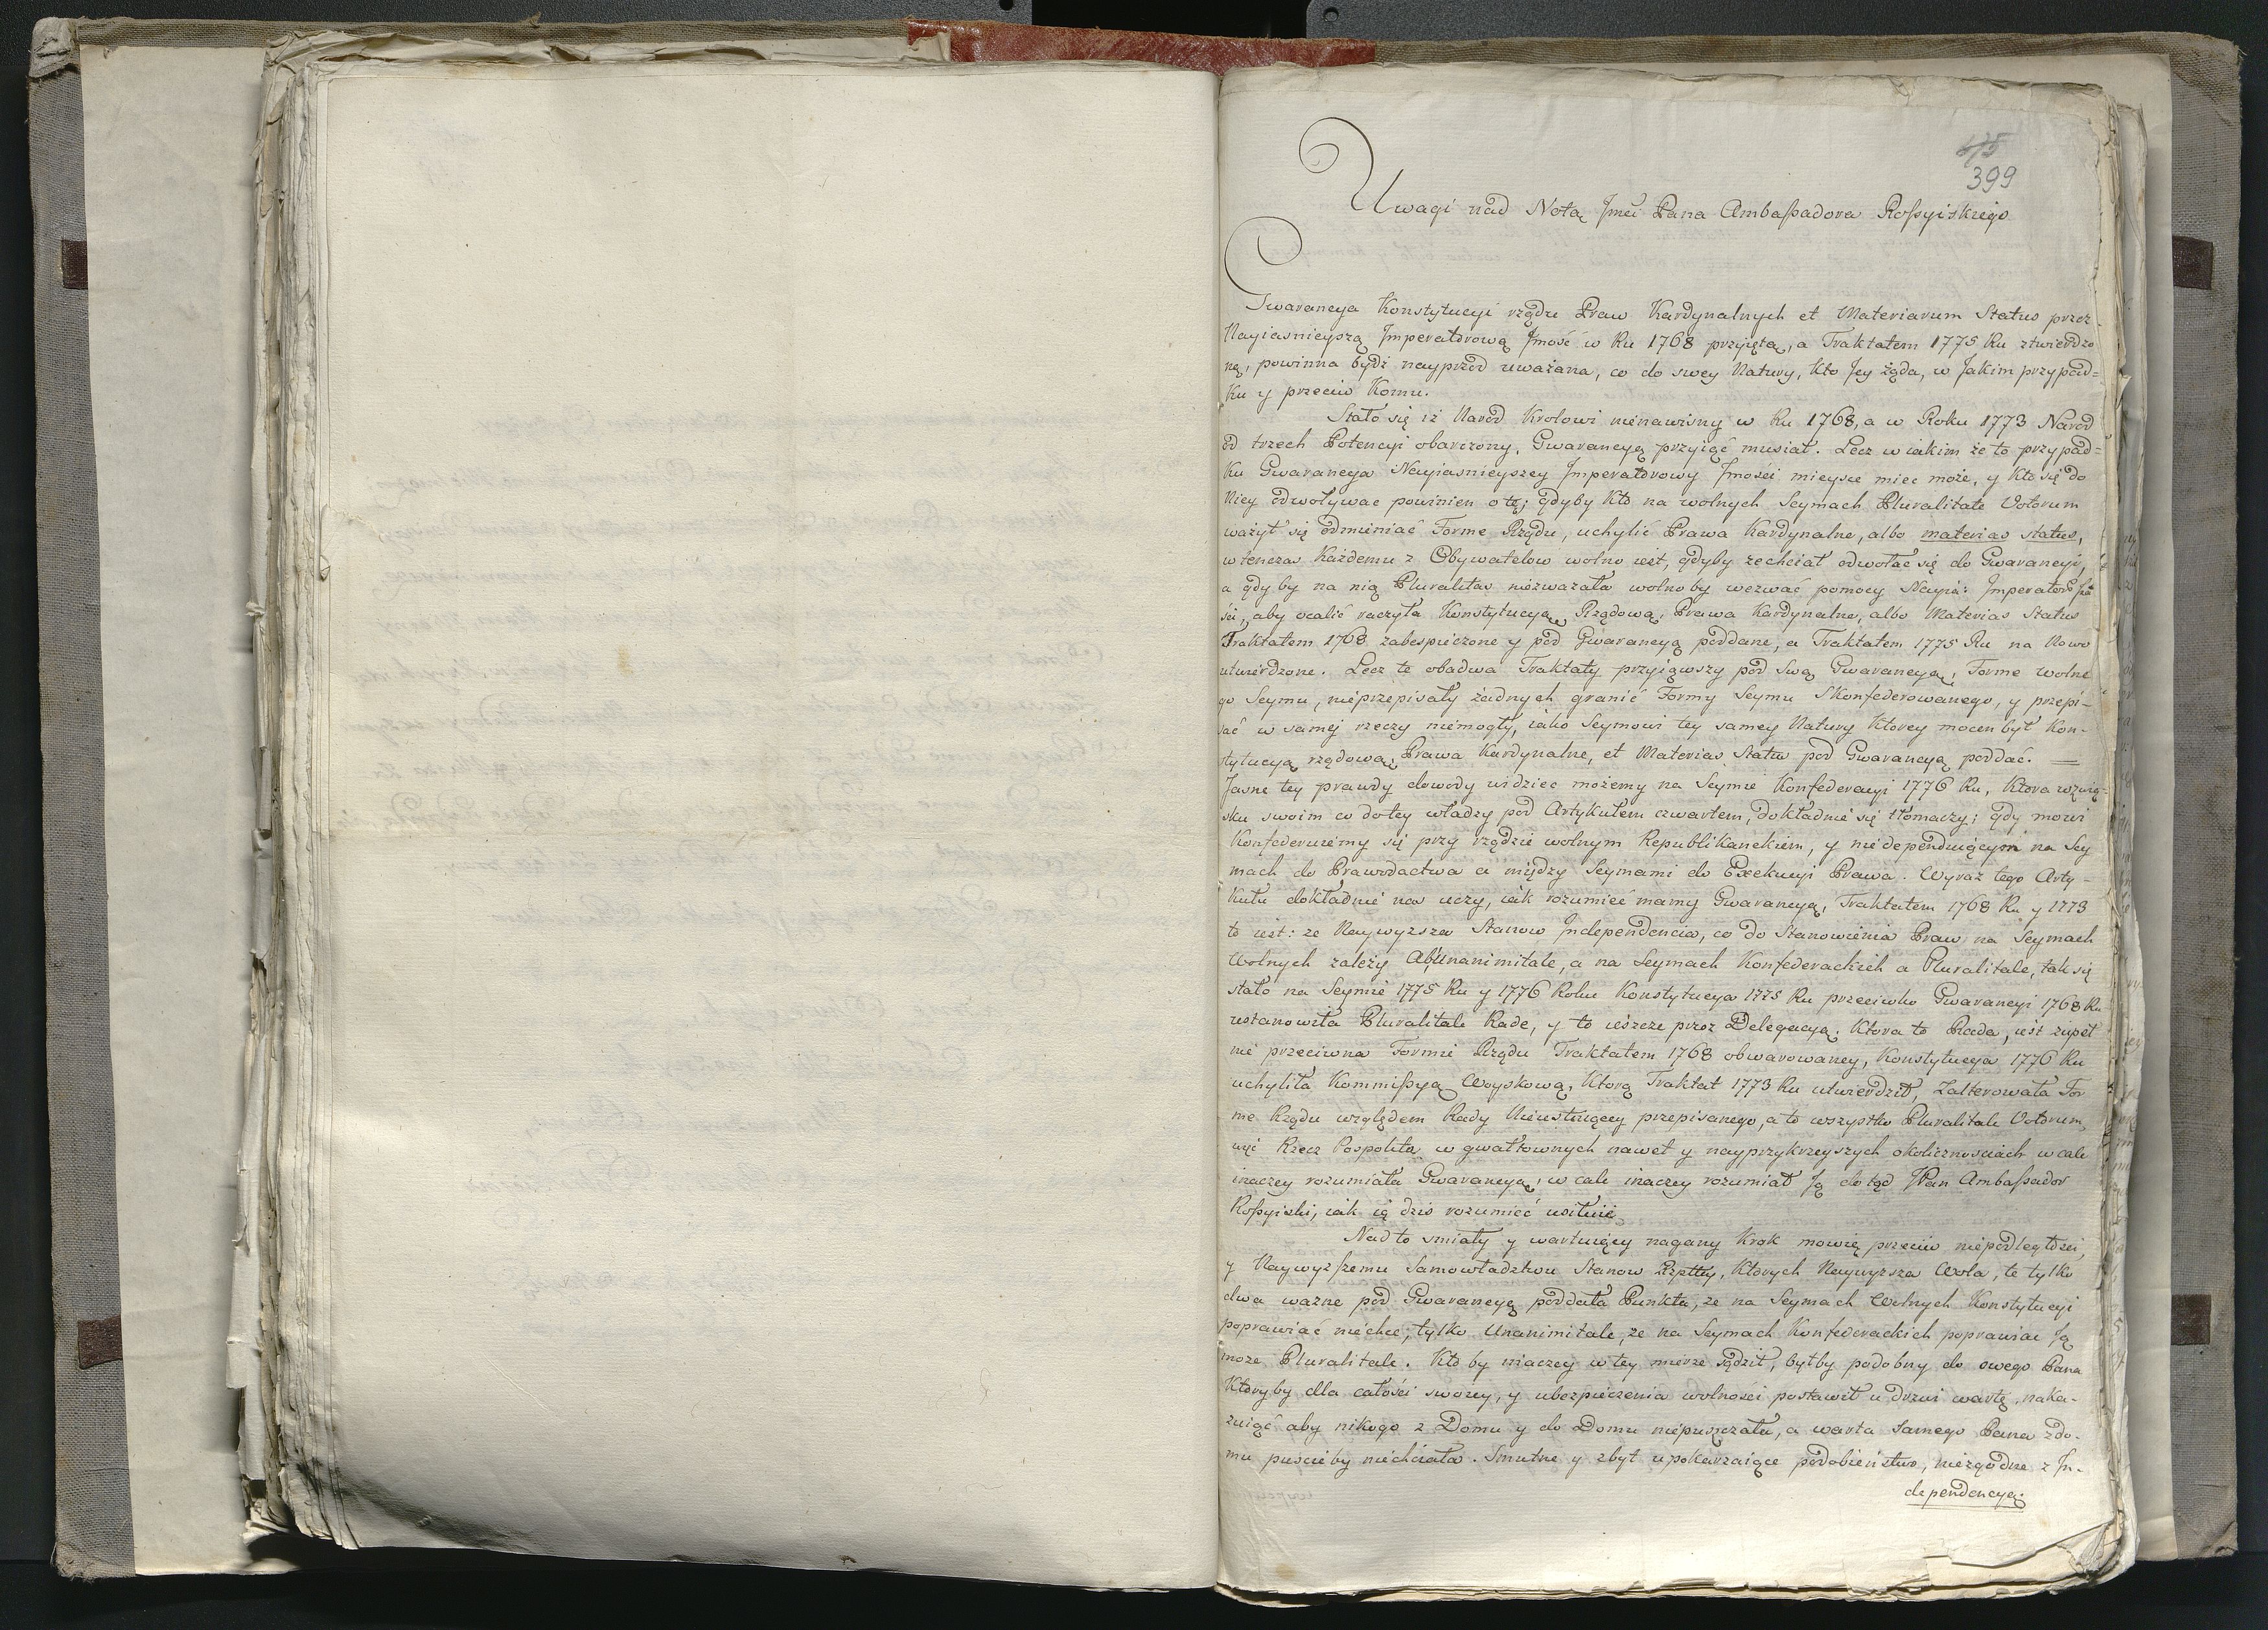 675
399
Uwagi nad Notą Jmći Pana Ambaſsadora Roſsyiskiego
Gwarancya Konstytucyi rządu Praw Kardynalnych et Materiarum Status przez
Nayiasnieyszą Jmperatorową Jmość w Ku 1768 przyięta, a Traktatem 1775 Ku ztwierdzo
na, powinna bydź nayprzod uważana, co do swey Natury, kto Jey żąda, w Jakim przypad=
ku y przeciw Komu.
Stało się iż Narod Krolowi nienawisny w Ku 1768, a w Roku 1773 Narod
od trzech Potencyi obarczony, Gwarancyą przyiąć musiał. Lecz w iakim że to przypad=
ku Gwarancya Nayiasnieyszey Jmperatorowy Jmości mieysce miec może, y kto się do
Niey odwoływac powinien o tę; gdyby kto na wolnych Seymach Pluralitate Votorum
ważył się odmieniać Forme Rządu, uchylić Prawa Kardynalne, albo materias status,
wtenczas Każdemu z Obywatelow wolno iest, gdyby zechciał odwołac się do Gwarancyi,
a gdy by na nią Pluralitas niezwazała wolno by wezwać pomocy Nayia: Jmperator Jm
ści, aby ocalić raczyła Konstytucyą Rządową, Prawa Kardynalne, albo Materias Status
Traktatem 1768 zabespieczone y pod Gwarancyą poddane, a Traktatem 1775 Ku na Nowo
utwierdzone. Lecz te obadwa Traktaty przyiąwszy pod swą Gwarancyą, Forme wolne
go Seymu, nieprzepisały żadnych granić Formy Seymu Skonfederowanego, y przepi-
sać w samej rzeczy niemogły, iako Seymowi tey samey Natury Ktorey mocen był Kon-
stytucyą rządową, Prawa Kardynalne, et Materias Status pod Gwarancyą poddać. —
Jasne tey prawdy dowody widziec możemy na Seymie Konfederacyi 1776 Ku, Ktora w zwią-
sku swoim co do tey władzy pod Artykułem czwartem, dokładnie się tłomaczy; gdy mowi
Konfederuiemy się przy rządzie wolnym Republikanckiem, y niedependuiącym na Sey
mach do Prawodactwa a między Seymami do Exekucyi Prawa. Wyraz tego Arty-
kułu dokładnie nas uczy, iak rozumieć mamy Gwarancyą, Traktatem 1768 Ku y 1773
to iest: ze Naywyzsza Stanow Jndependencia, co do Stanowienia Praw na Seymach
Wolnych zależy Ab Unanimitate, a na Seymach Konfederackich a Pluralitate, tak się
stało na Seymie 1775 Ku y 1776 Roku Konstytucya 1775 Ku przeciwko Gwarancyi 1768 Ku
ustanowiła Pluralitate Rade, y to ieszcze przez Delegacyą. Ktora to Rada, iest zupeł
nie przeciwna Formie Rządu Traktatem 1768 obwarowaney, Konstytucya 1776 Ku
uchyliła Kommiſsyą Woyskową, Ktorą Traktat 1773 Ku utwierdził, Zalterowała For
me Rządu względem Rady Nieustaiącey przepisanego, a to wszystko Pluralitate Votorum,
więc Rzecz Pospolita w gwałtownych nawet y nayprzykrzeyszych okolicznosciach wcale
inaczey rozumiała Gwarancyą, w cale inaczey rozumiał Ją do tąd JPan Ambaſsador
Roſsyiski, iak ią dzis rozumieć usiłuie
Nadto smiały y wartuiący nagany Krok mowię przeciw niepodległości,
y Naywyzſzemu Samowładztwu Stanow Rzptey, Ktorych Naywyzsza Wola, te tylko
dwa wazne pod Gwarancyą poddała Punkta, ze na Seymach Wolnych Konstytucyi
poprawiać niechce, tylko Unanimitate, ze na Seymach Konfederackich poprawiac Ją
moze Pluralitate. Kto by inaczey w tey mierze sądził, byłby podobny do owego Pana
Ktoryby dla całości swoiey, y ubezpieczenia wolności postawił u drzwi wartę, naka-
zuiąć aby nikogo z Domu y do Domu niepuszczała, a warta Samego Pana z do-
mu puscić by niechciała. Smutne y zbyt upokarzaiące podobieństwo, niezgodne z Jn-
dependencyą.